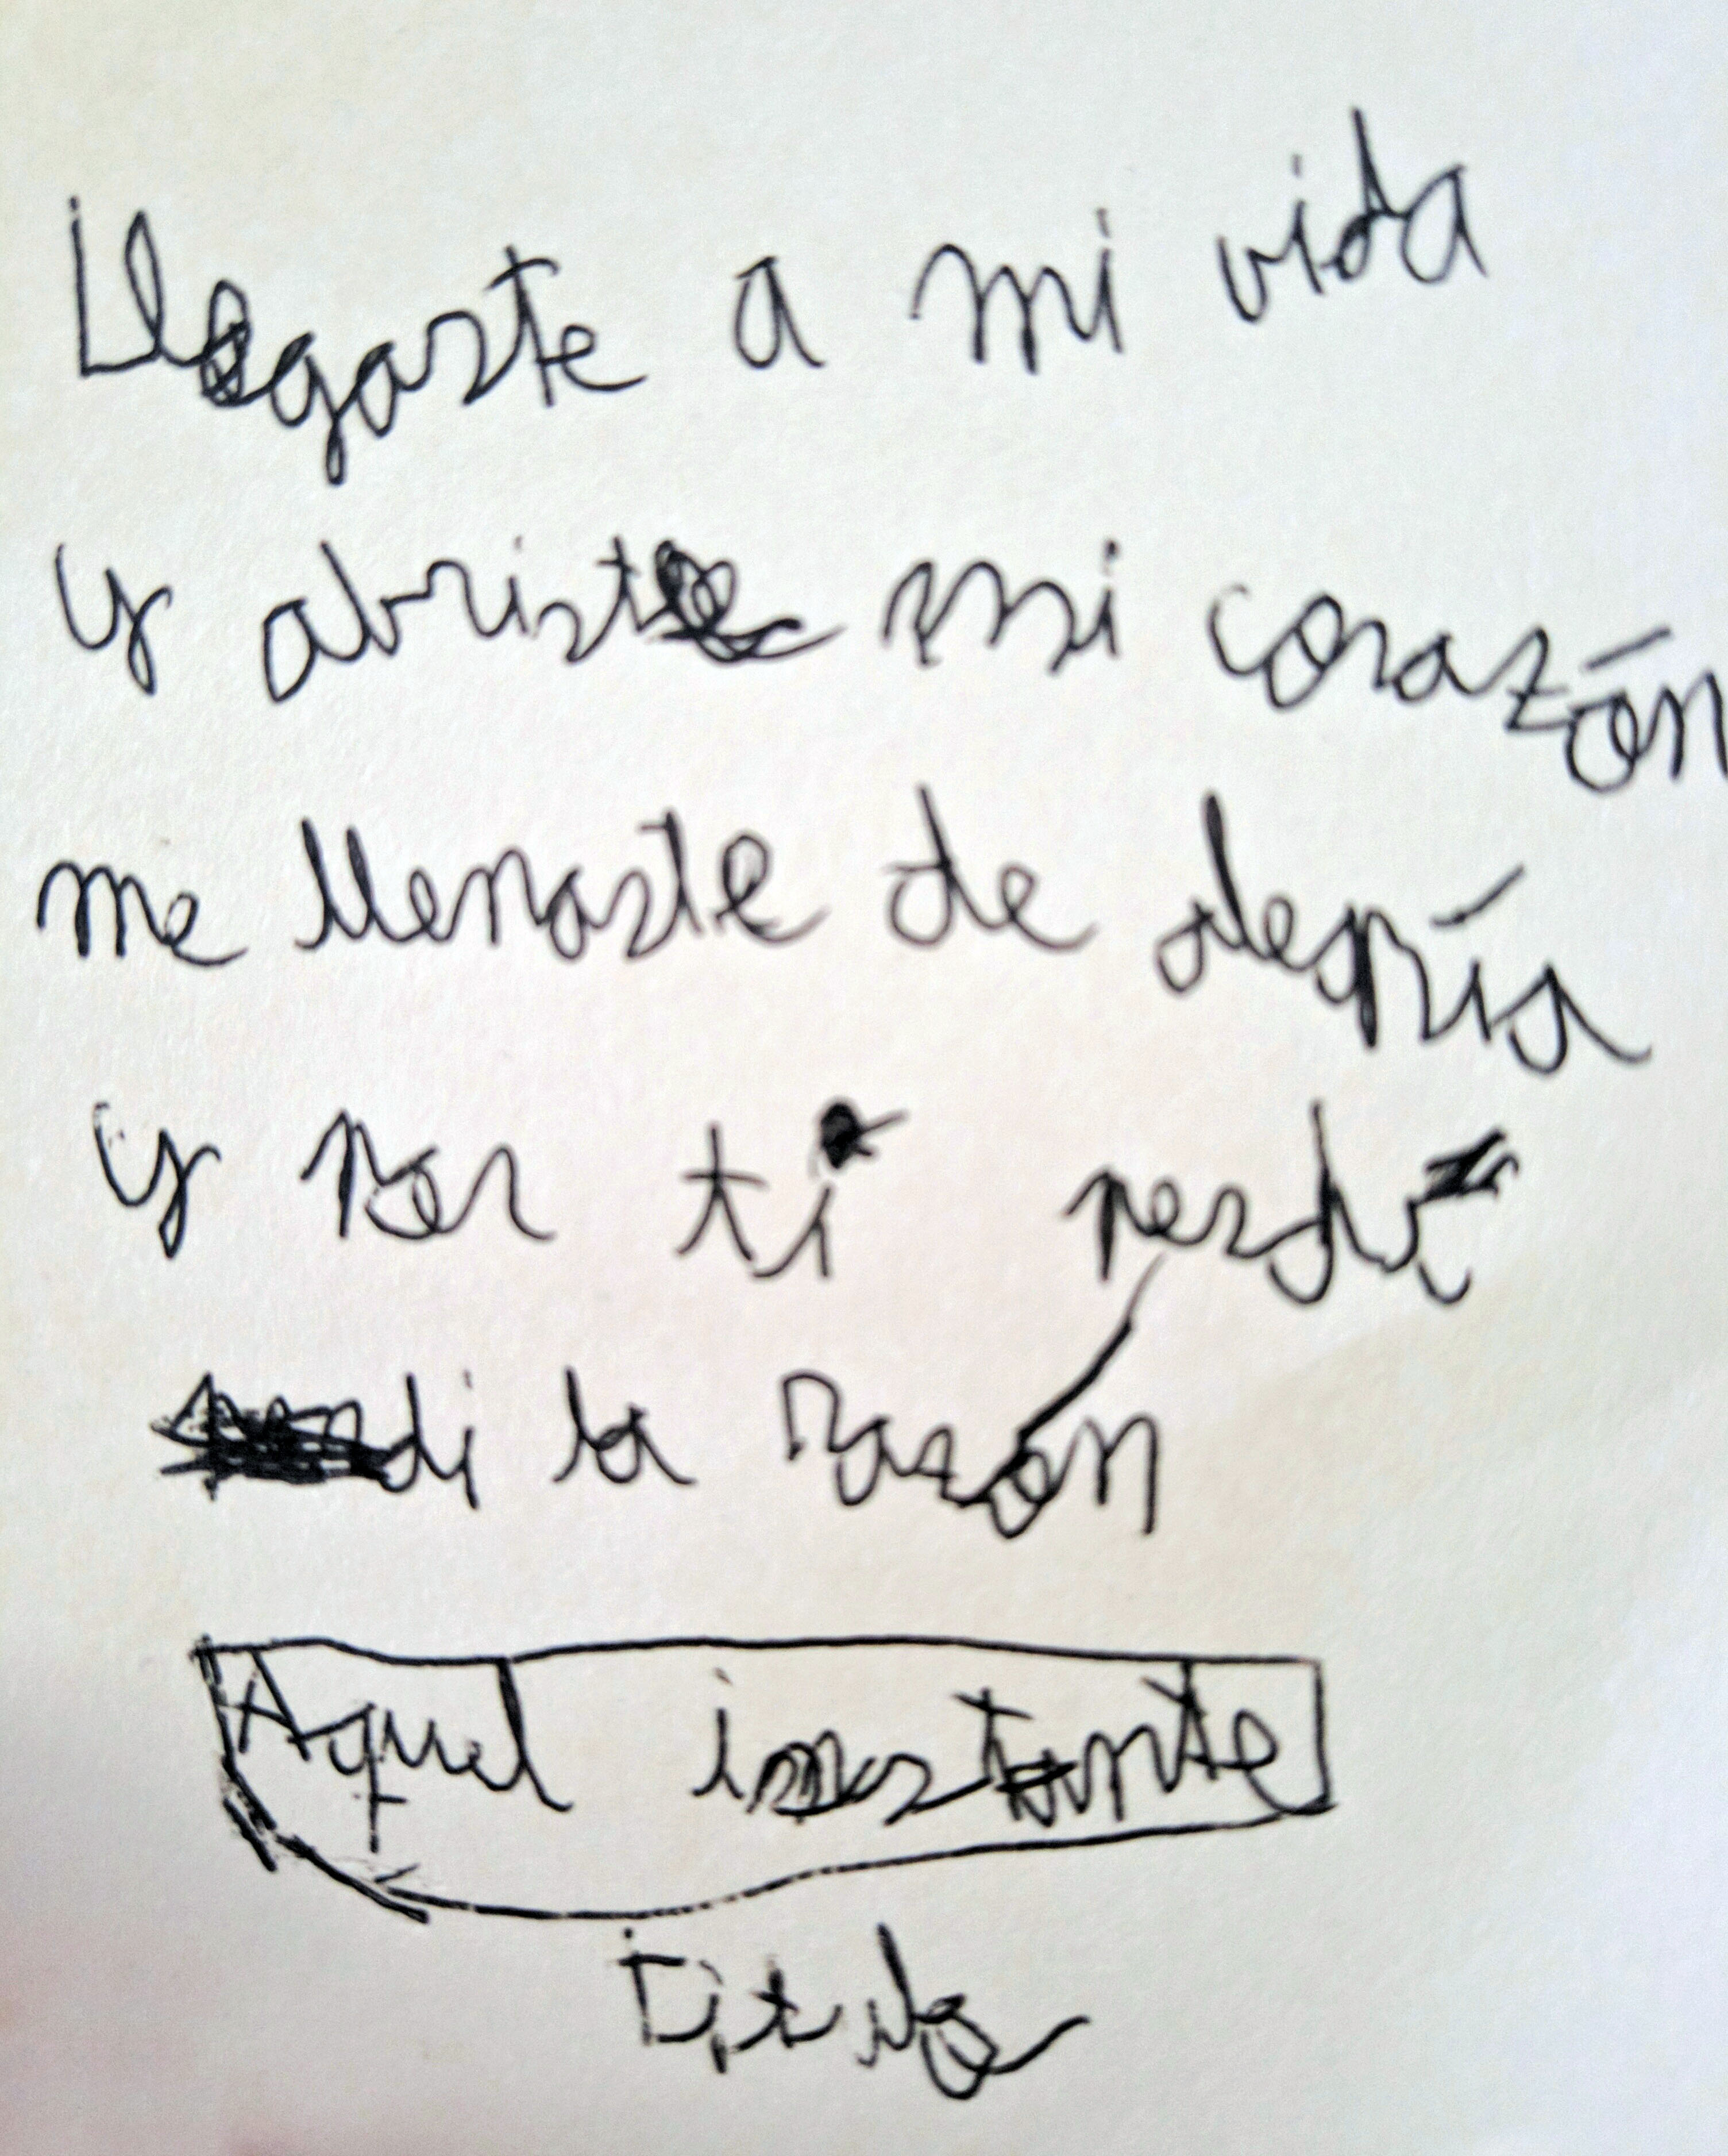 Llegaste a mi vida
y abriste mi corazón
me llenaste de alegría
y por ti perdí
di la razón
Aquel instante
Titulo